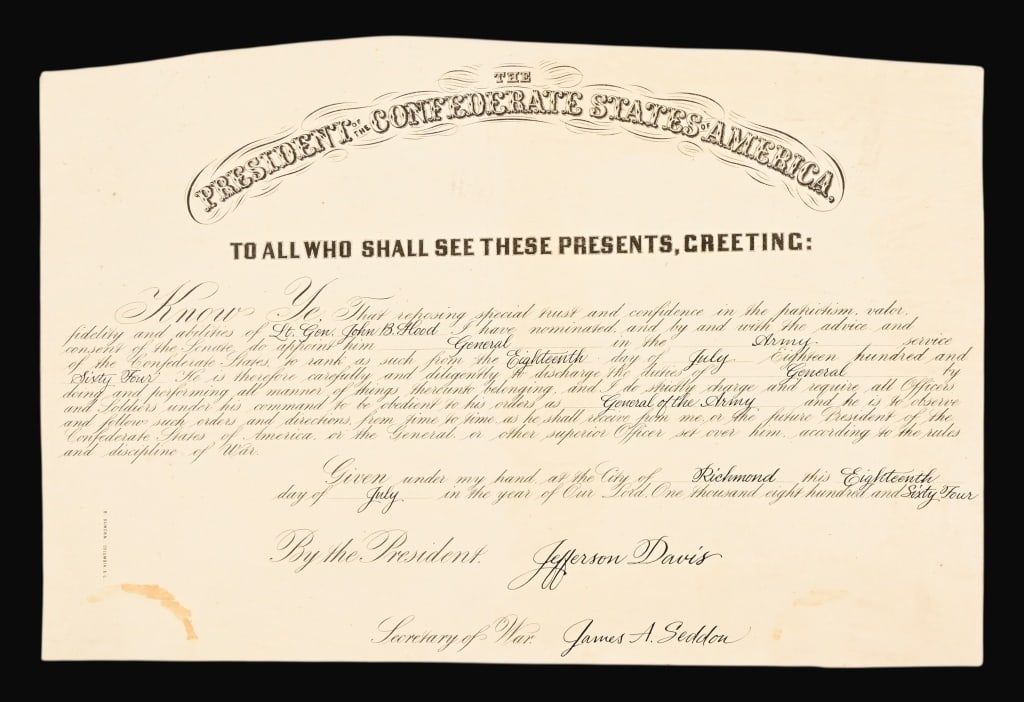 THE
PRESIDENT OF THE CONFEDERATE STATES OF AMERICA,
TO ALL WHO SHALL SEE THESE PRESENTS, GREETING:
Know Ye, That reposing special trust and confidence in the patriotism, valor,
fidelity and abilities of Lt. Gen. John B. Hood I have nominated, and by and with the advice and
consent of the Senate, do appoint him General in the Army service
of the Confederate States, to rank as such from the Eighteenth day of July Eighteen hundred and
Sixty Four He is therefore carefully and diligently to discharge the duties of General by
doing and performing all manner of things thereunto belonging, and I do strictly charge and require all Officers
and Soldiers under his command to be obedient to his orders as General of the Army and he is to observe
and follow such orders and directions, from time to time, as he shall receive from me, or the future President of the
Confederate States of America, or the General or other superior Officer set over him, according to the rules
and discipline of War.
Given under my hand, at the City of Richmond this Eighteenth
day of July in the year of Our Lord, One thousand eight hundred and Sixty Four
By the President. Jefferson Davis
Secretary of War. James A. Seddon